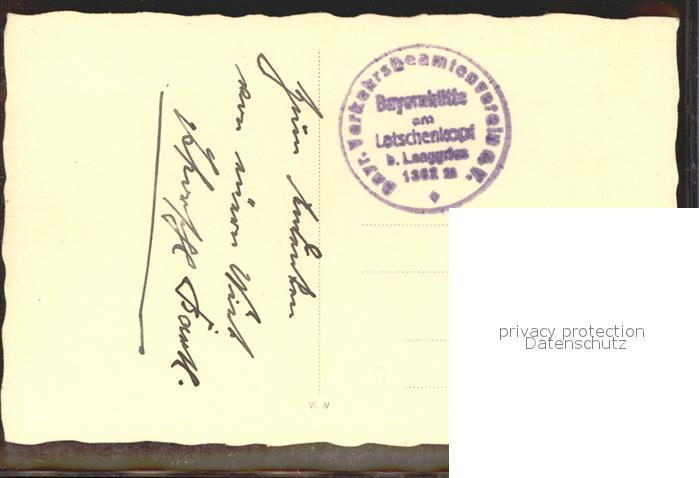 Bayr. Verkehrsbeamtenverein e.V.
Bayernhütte
am
Latschenkopf
b. Lenggries
1362 m
Zum Andenken
von
Wirt
privacy protection
Datenschutz